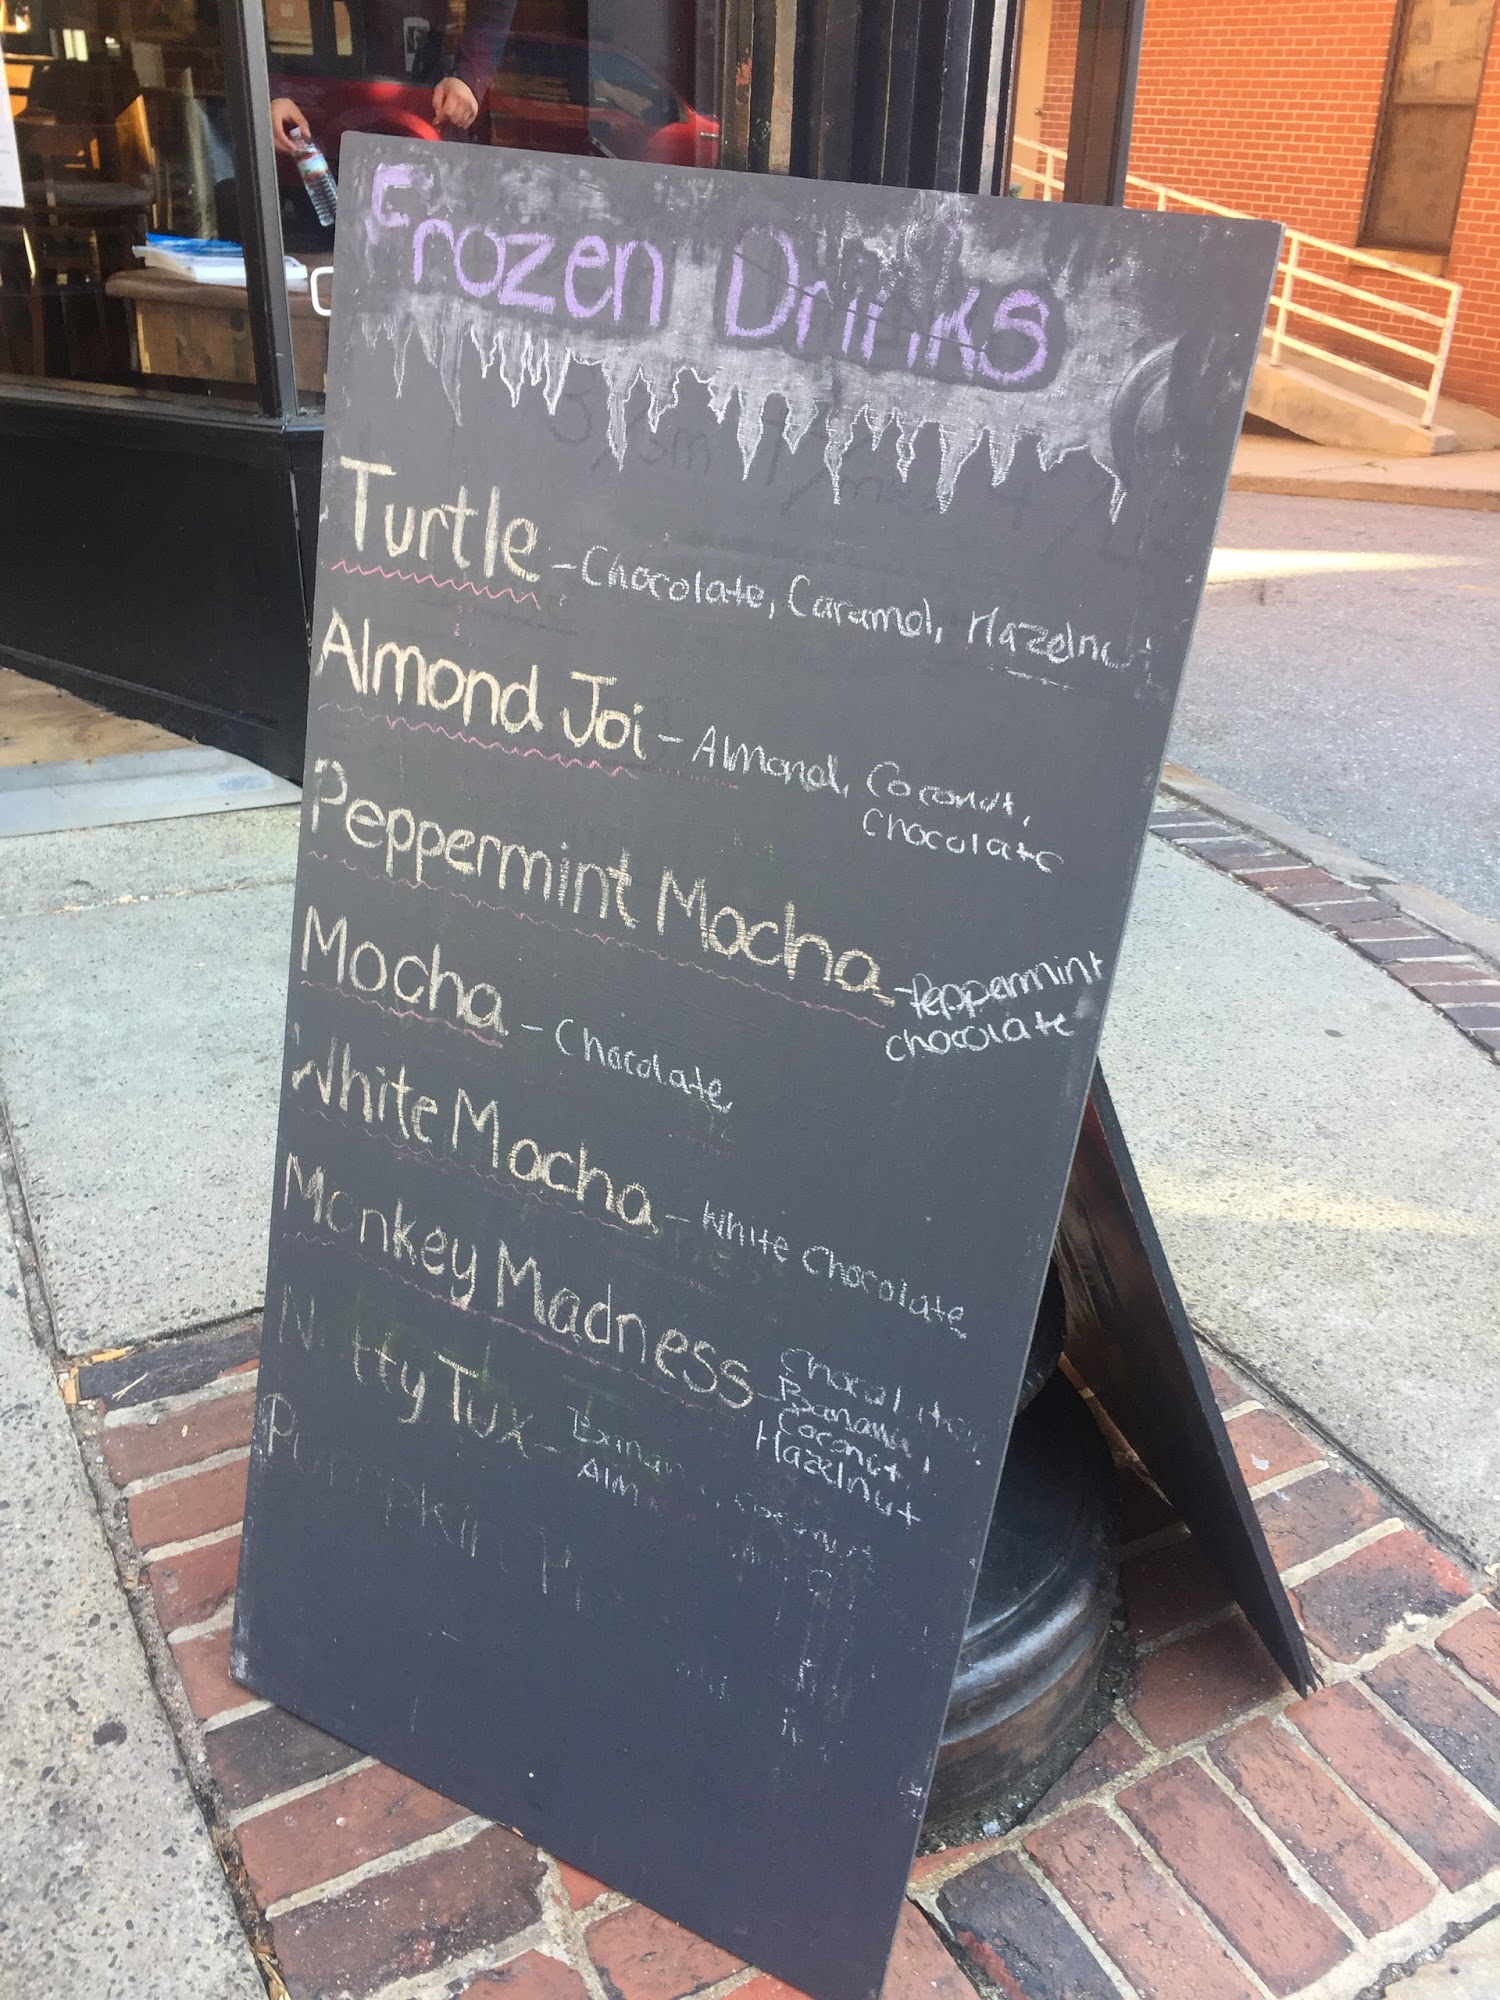 Frozen Drinks
Turtle - Chocolate, Caramel, Hazelnut
Almond Joi - Almond, Coconut,
Chocolate
Peppermint Mocha - Peppermint
chocolate
Mocha - Chocolate
White Mocha - White Chocolate
Monkey Madness - Chocolate,
Banana,
Coconut,
Hazelnut
Tux -
Coconut
Pumpkin